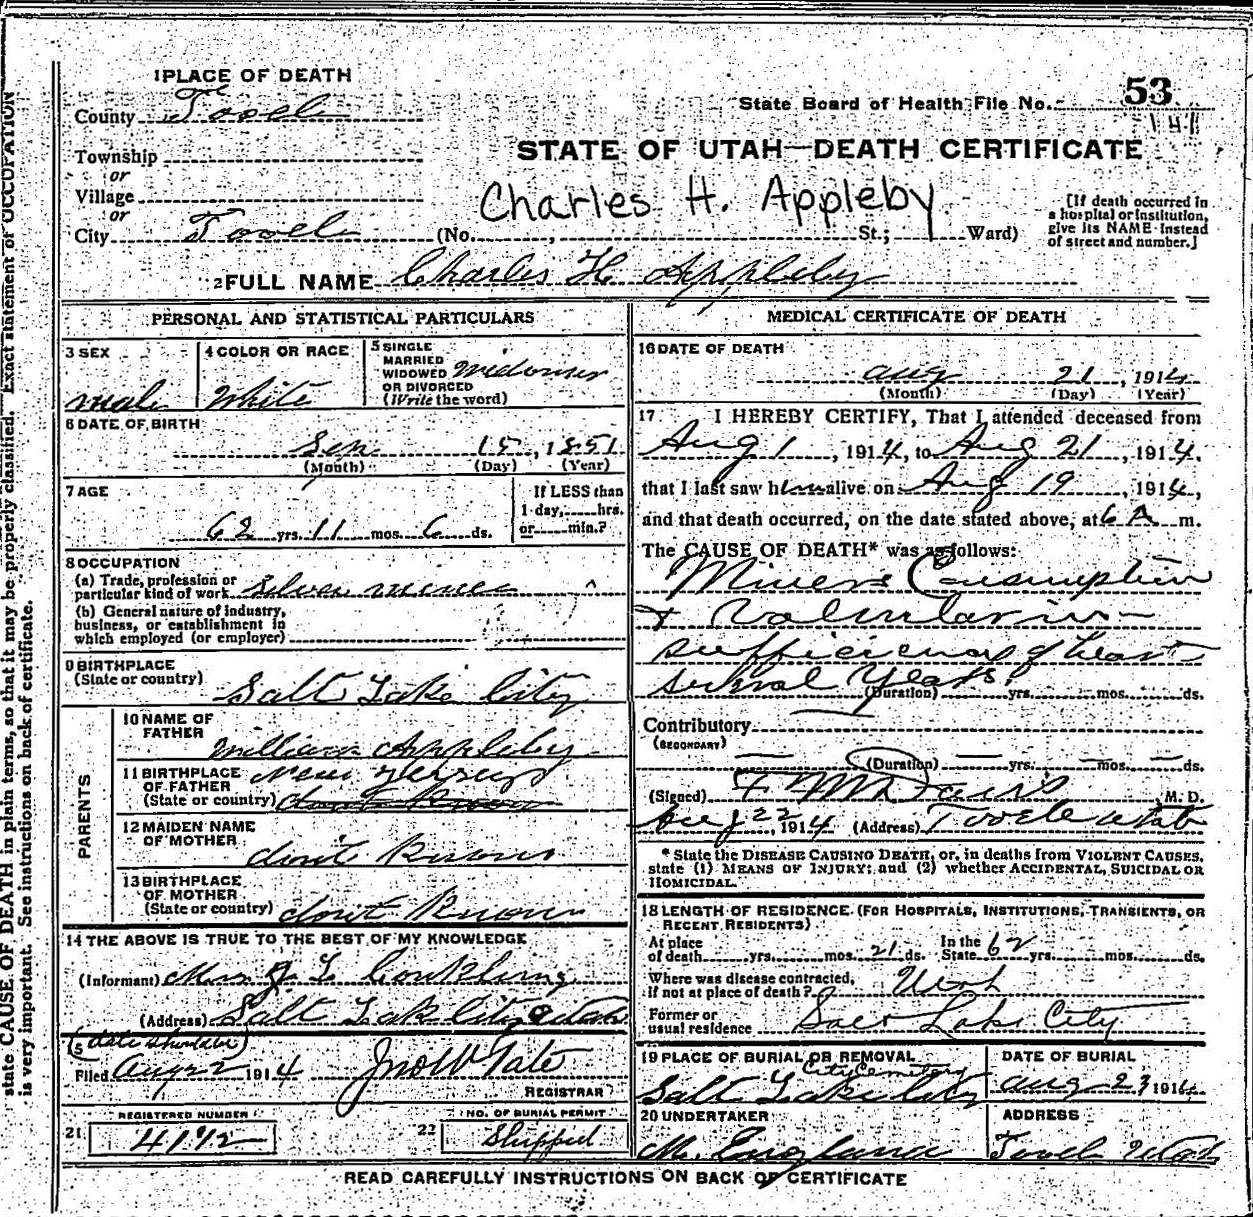 state CAUSE OF DEATH in plain terms, so that it may be properly classified. Exact statement of OCCUPATION
is very important. See instructions on back of certificate.
1 PLACE OF DEATH
County Tooele
Township
or
Village
or
City Tooele (No. , St.; Ward)
State Board of Health File No. 53
141
STATE OF UTAH—DEATH CERTIFICATE
Charles H. Appleby
[If death occurred in
a hospital or institution,
give its NAME instead
of street and number.]
2 FULL NAME Charles H. Appleby
PERSONAL AND STATISTICAL PARTICULARS
3 SEX
male
4 COLOR OR RACE
White
5 SINGLE
MARRIED
WIDOWED
OR DIVORCED
(Write the word)
widower
6 DATE OF BIRTH
Sep 15, 1851
(Month) (Day) (Year)
7 AGE
62 yrs. 11 mos. 6 ds.
If LESS than
1 day, hrs.
or min.?
8 OCCUPATION
(a) Trade, profession or
particular kind of work silver miner
(b) General nature of industry,
business, or establishment in
which employed (or employer)
9 BIRTHPLACE
(State or country)
Salt Lake City
PARENTS
10 NAME OF
FATHER
William Appleby
11 BIRTHPLACE
OF FATHER
(State or country)
New Jersey
dont Know
12 MAIDEN NAME
OF MOTHER
dont Know
13 BIRTHPLACE
OF MOTHER
(State or country) dont Know
14 THE ABOVE IS TRUE TO THE BEST OF MY KNOWLEDGE
(Informant) Mrs J. L. Conkling
(Address) Salt Lake City Utah
Filed Aug 22 1914 Jno W Tate
REGISTRAR
REGISTERED NUMBER
21
NO. OF BURIAL PERMIT
22 Shipped
MEDICAL CERTIFICATE OF DEATH
16 DATE OF DEATH
Aug 21, 1914
(Month) (Day) (Year)
17 I HEREBY CERTIFY, That I attended deceased from
Aug 1, 1914, to Aug 21, 1914.
that I last saw him alive on Aug 19, 1914,
and that death occurred, on the date stated above, at 6 A m.
The CAUSE OF DEATH* was as follows:
Miners Consumption
+ Valvular in-
sufficiency of heart
several years.
(Duration) yrs. mos. ds.
Contributory
(SECONDARY)
(Duration) yrs. mos. ds.
(Signed) F M Davis M. D.
Aug 22, 1914 (Address) Tooele Utah
* State the DISEASE CAUSING DEATH, or, in deaths from VIOLENT CAUSES,
state (1) MEANS OF INJURY; and (2) whether ACCIDENTAL, SUICIDAL OR
HOMICIDAL.
18 LENGTH OF RESIDENCE (FOR HOSPITALS, INSTITUTIONS, TRANSIENTS, OR
RECENT RESIDENTS)
At place
of death yrs. mos. 21 ds. In the
State 62 yrs. mos. ds.
Where was disease contracted,
if not at place of death? Utah
Former or
usual residence Salt Lake City
19 PLACE OF BURIAL OR REMOVAL
City Cemetery
Salt Lake City
DATE OF BURIAL
Aug 23 1914
20 UNDERTAKER
M. England
ADDRESS
Tooele Utah
READ CAREFULLY INSTRUCTIONS ON BACK OF CERTIFICATE